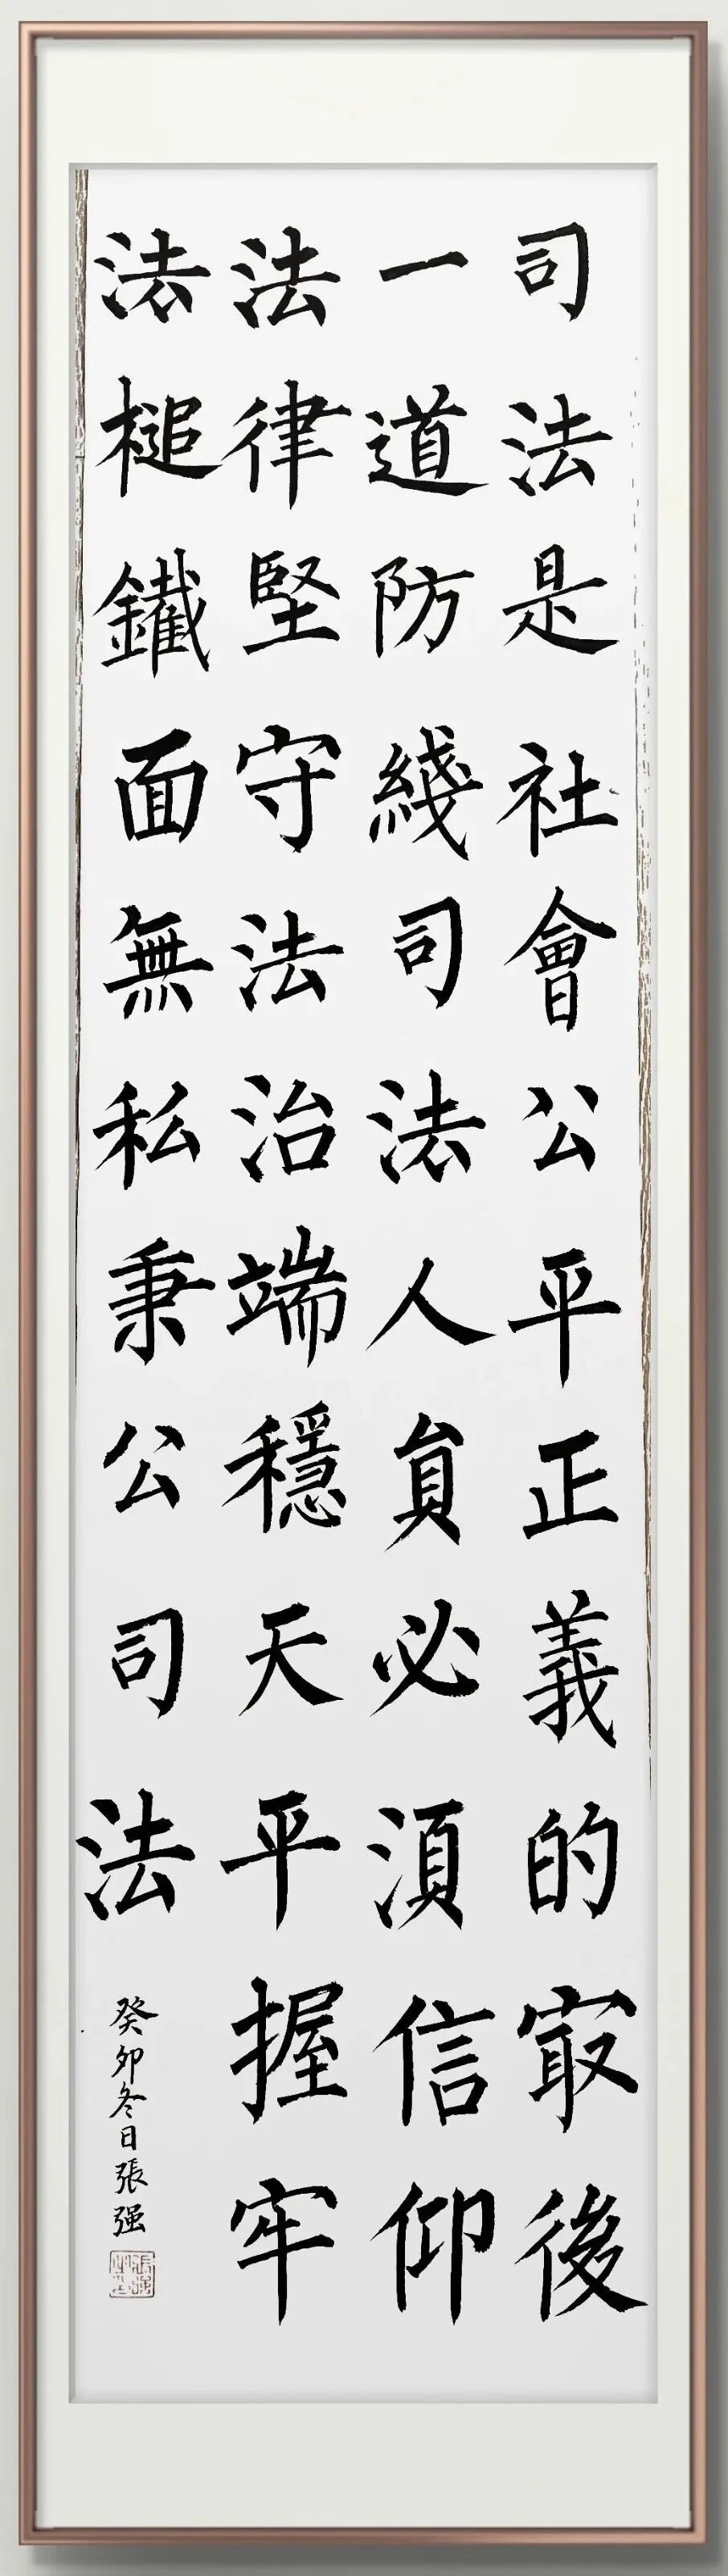 司法是社會公平正義的㝡後
一道防綫司法人員必湏信仰
法律堅守法治端穩天平握牢
法槌鐵面無私秉公司法
癸卯冬日張强